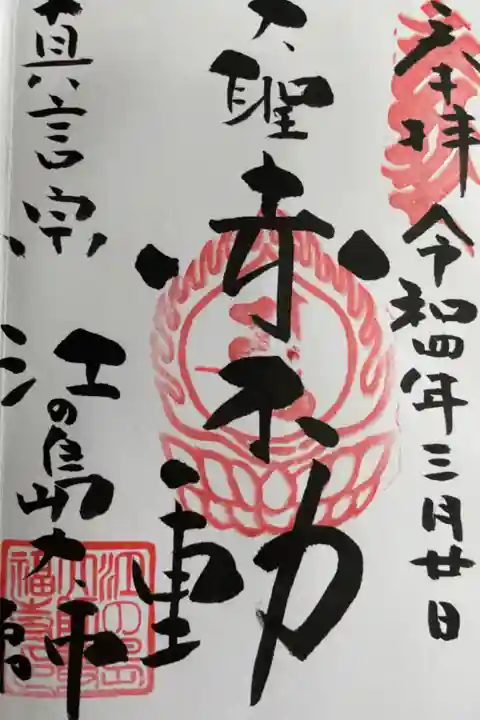 奉拝 令和四年三月廿日
大聖赤不動
真言宗 江の島大師